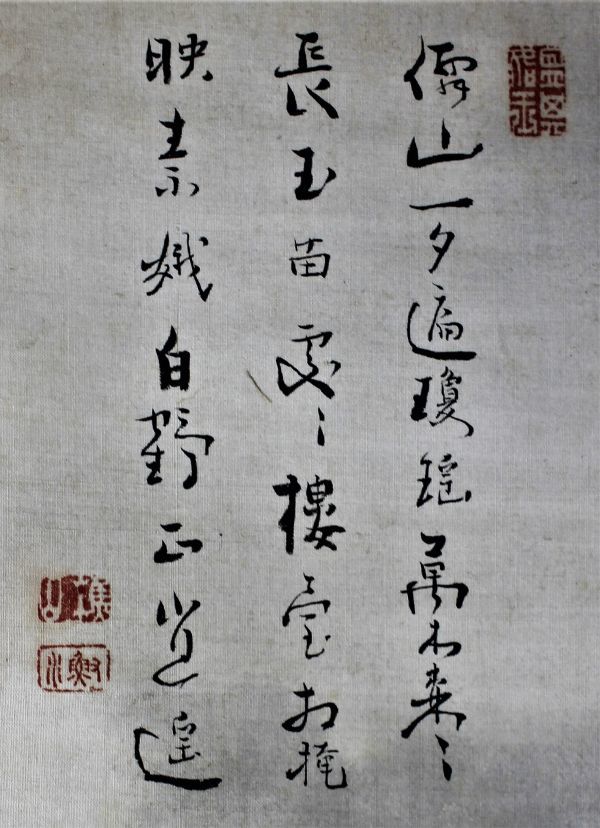 僊山一夕遍瓊瑤萬木森〻
長玉苗處〻樓臺相掩
映素娥白鶴正逍遙